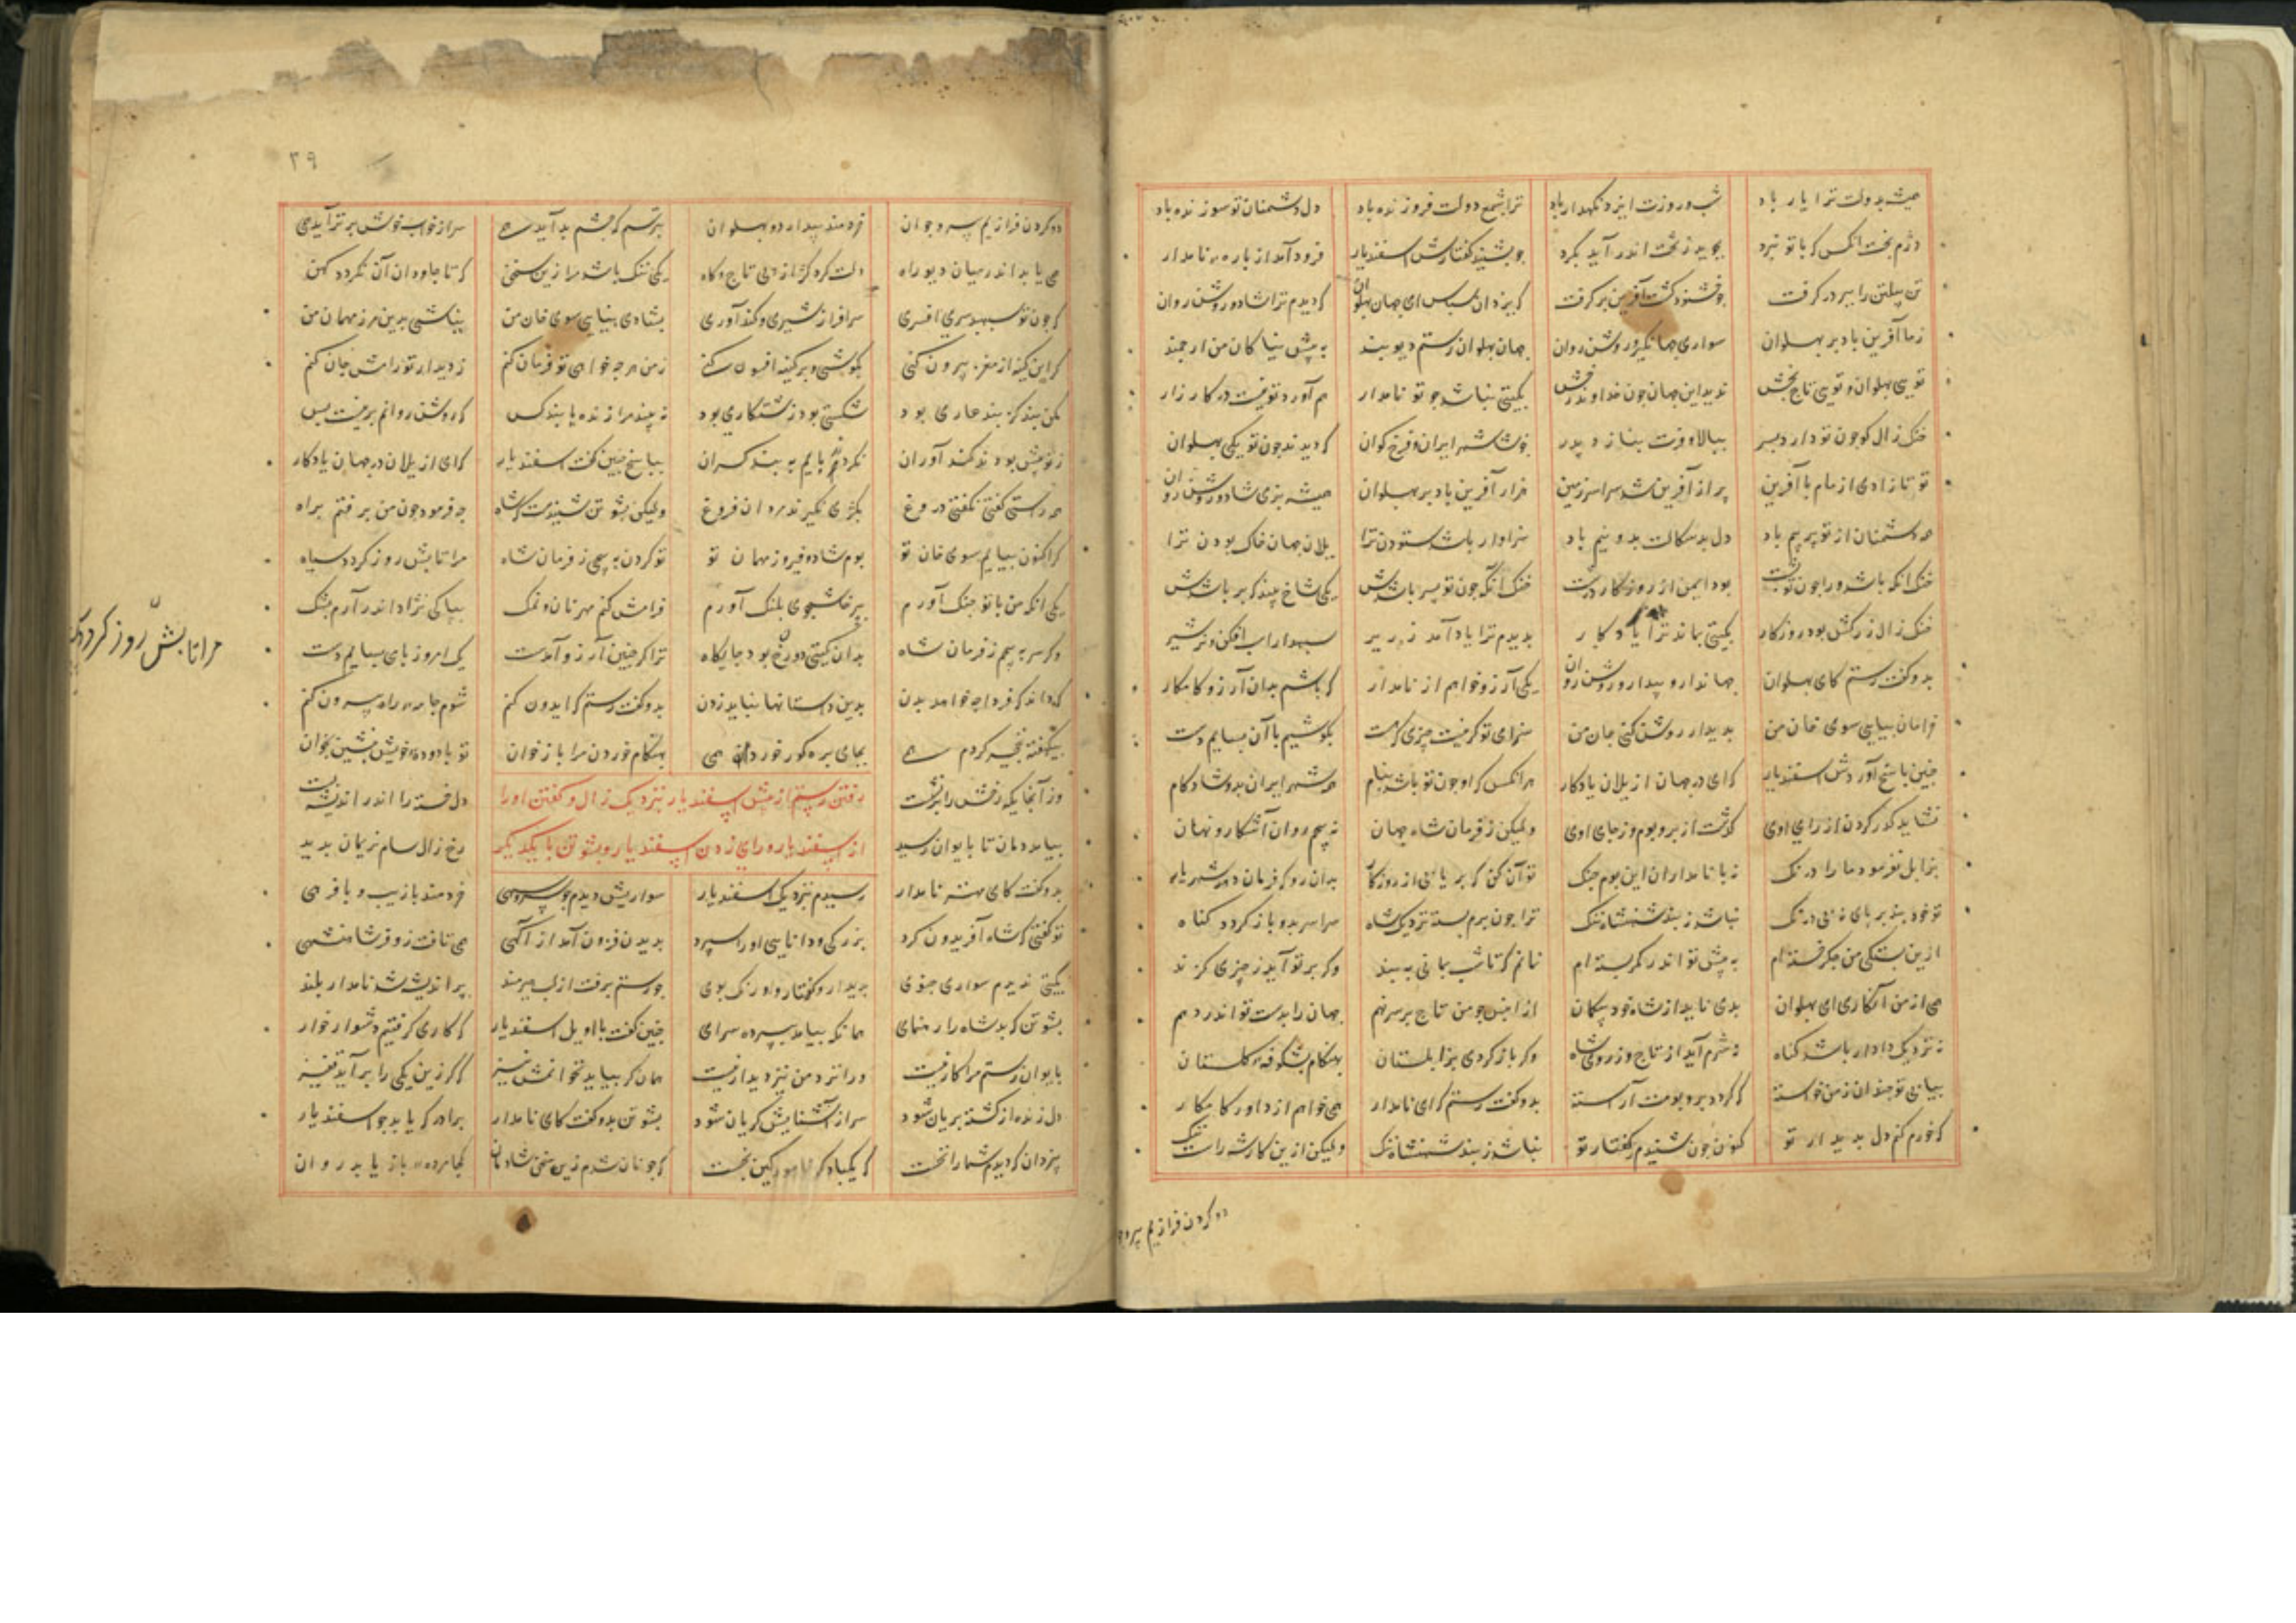 همیشه بدولت ترا یار باد شب و روزت ایزد نگهدار باد ترا شمع دولت فروزنده باد دل دشمنان تو سوزنده باد
دژم بخت انکس که با تو نبرد بجوید ز تخت اندر آید بگرد چو بشنید گفتارش اسفندیار فرود آمد از باره نامدار
تن پیلتن را ببر در گرفت چو خشنود گشت آفرین برگرفت که یزدان سپاس ای جهان پهلوان که دیدم ترا شاد و روشن روان
تویی پهلوان و تویی تاج بخش ندید این جهان چون خداوند رخش بگیتی نباشد چو تو نامدار هم آورد تو نیست در کارزار
خنک زال کو چون تو دارد پسر ببالا و فرت بنازد پدر خوشا شهر ایران و فرخ گوان که دیدند چون تو یکی پهلوان
تو تا زادی از مام با آفرین پر از آفرین شد سراسر زمین هزار آفرین باد بر پهلوان همیشه بزی شاد و روشن روان
همه دشمنان از تو پر بیم باد دل بدسگالت بدو نیم باد سزاوار باشد ستودن ترا یلان جهان خاک بودن ترا
خنک انکه باشد ورا چون تو پشت بود ایمن از روزگار درشت خنک آنکه چون تو پسر باشدش یکی شاخ بیند که بر باشدش
خنک زال کش بود روزگار بگیتی بماند ترا یادگار بدیدم ترا یاد آمد زریر سپهدار اسپ افکن و نره شیر
بدو گفت رستم کای پهلوان جهاندار و بیدار و روشن روان یکی آرزو خواهم از نامدار که باشم بدان آرزو کامکار
خرامان بیایی سوی خان من بدیدار روشن کنی جان من سزای تو گر نیست چیزی که هست بکوشیم با آن بساییم دست
چنین پاسخ آوردش اسفندیار که ای در جهان از یلان یادگار هر انکس کو چون تو باشد بنام همه شهر ایران بدو شادکام
نشاید گذر کردن از رای اوی گذشت از بر و بوم وز جای اوی ولیکن ز فرمان شاه جهان نپیچم روان آشکار و نهان
بزابل نفرمود ما را درنگ نه با نامداران این بوم جنگ تو آن کن که بر یابی از روزگار بران رو که فرمان دهد شهریار
تو خود بند بر پای نه بی درنگ نباشد ز بند شهنشاه ننگ ترا چون برم بسته نزدیک شاه سراسر بدو باز گردد گناه
ازین بستگی من جگر خسته ام به پیش تو اندر کمر بسته ام نمانم که تا شب بمانی به بند وگر بر تو آید ز چیزی گزند
همی از من انگاری ای پهلوان بدی ناید از شاه خود بیگمان از انپس چو من تاج بر سر نهم جهان را بدست تو اندر دهم
نه نزدیک دادار باشد گناه نه شرم آید از تاج وز روی شاه وگر باز گردی بزابلستان بهنگام بشکوفه گلستان
بیابی تو چندان ز من خواسته که گردد بر و بومت آراسته بدو گفت رستم که ای نامدار همی خواهم از داور کامکار
که خرم کنم دل بدیدار تو کنون چون شنیدم گفتار تو نباشد ز بند شهنشاه ننگ ولیکن ازین کار شد راه تنگ
دو گردن فرازیم پیر و
۳۹
دو گردن فرازیم پیر و جوان خردمند و بیدار دو پهلوان بترسم که چشم بد آید همی سر از خواب خوش بر تر آید همی
همی یابد اندر میان دیو راه دلت کرد کژ از پی تاج و گاه یکی ننگ باشد مرا زین سخن که تا جاودان آن نگردد کهن
که چون تو سپهبد سری افسری سرافراز شیری و کندآوری بشادی بیایی سوی خان من بباشی برین مرز مهمان من
گر این کینه از مغز بیرون کنی بکوشی و بر کینه افسون کنی ز من هر چه خواهی تو فرمان کنم ز دیدار تو رامش جان کنم
مگر بند کز بند عاری بود شکستی بود زشت کاری بود نه بیند مرا زنده با بند کس که روشن روانم برینست بس
ز تو پیش بودند کندآوران نکردند پایم به بند گران بپاسخ چنین گفت اسفندیار که ای از یلان در جهان یادگار
همه راستی گفتی نگفتی دروغ بکژی نگیرند مردان فروغ ولیکن پشوتن شنیدست که شاه چه فرمود چون من برفتم براه
گر اکنون بیایم سوی خان تو بوم شاد و فیروز مهمان تو تو گردن به پیچی ز فرمان شاه مرا تابش روز گردد سیاه
یکی انکه من با تو جنگ آورم بپرخاشجوی پلنگ آورم فرامش کنم مهر نان و نمک بپاکی نژاد اندر آرم بشک
وگر سر به پیچم ز فرمان شاه بدان گیتی دوزخ بود جایگاه ترا گر چنین آرزو آمدست یک امروز با می بساییم دست
که داند که فردا چه خواهد بدن بدین داستانها نباید زدن بدو گفت رستم که ایدون کنم شوم جامه راه بیرون کنم
بیکهفته نخچیر کردم همی بجای بره گور خوردم همی بهنگام خوردن مرا باز خوان تو با دوده خویش بنشین بخوان
وز آنجایکه رخش را برنشست دل خسته را اندر اندیشه بست
رفتن رستم از پیش اسفندیار نزدیک زال و گفتن او را
از اسفندیار و رای زدن اسفندیار و پشوتن با یکدیگر
بیامد دمان تا بایوان رسید رخ زال سام نریمان بدید
بدو گفت کای مهتر نامدار رسیدم نزدیک اسفندیار سواریش دیدم چو سرو سهی خردمند با زیب و با فرهی
تو گفتی که شاه آفریدون گرد بزرگی و دانایی او را سپرد بدیدن فزون آمد از آگهی همی تافت زو فر شاهنشهی
چو رستم برفت از لب هیرمند پر اندیشه شد نامدار بلند
پشوتن که بد شاه را رهنمای همانگه بیامد بپرده سرای چنین گفت با او یل اسفندیار که کاری گرفتیم دشوار خوار
بایوان رستم مرا کار نیست ورا نزد من نیز دیدار نیست همان گر نیاید نخوانمش نیز گر از زین یکی را برآید قفیز
دل زنده از کشته بریان شود سر از آشنایش گریان شود پشوتن بدو گفت کای نامدار برادر که یابد چو اسفندیار
بیزدان که دیدم شما را نخست
مرا تابش روز گردد